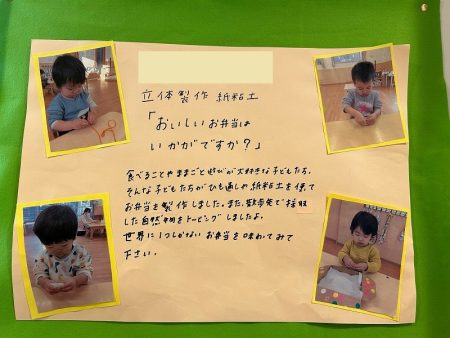 立体製作 紙粘土
「おいしいお弁当は
いかがですか？」
食べることやままごと遊びが大好きな子どもたち。
そんな子どもたちがひも通しや紙粘土を使って
お弁当を製作しました。また、散歩先で採取
した自然物をトッピングしましたよ。
世界に1つしかないお弁当を味わってみて
下さい。